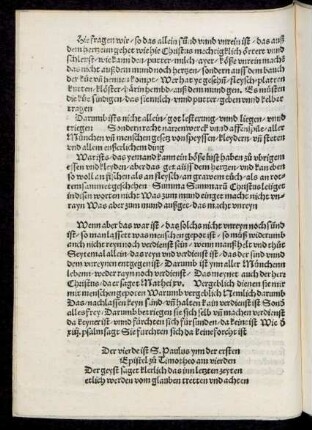 Hie fragen wir/ so das allein sünd vnnd vnrein ist/ das auß
dem hertzen gehet wie hie Christus mechtigklich örtert vnnd
schleust/ wie kann den/ putter/ milch/ ayer/ köße vnrein mach
das nicht auß dem mund noch hertzen/ sondern auss dem bauch
der kue vñ henne kompt/ Wer hat ye geschüssel/ fleysch/ platten
kutten/ klöster/ härin hembd/ auß dem mund gen/ Es müsten
die kue sündigen/ das sie milch/ vnd putter/ geben vnd kelber
tragen
Darumb ists nicht allein/ got lesterung/ vnd liegen/ vnd
triegen Sondern recht narrenwerck vnd affenspile/ aller
München vñ menschen gesetz von speyssen/ kleydern/ vñ steten
vnd allen eußerlichem ding
War ists/ das yemand kann ein böße lust haben zu vbrigem
essen vnd kleyder/ aber das get auß dem hertzen/ vnd kan eben
so woll an fischen als an fleysch/ an grawem tuch/ als an rot-
tem sammet geschehen Summa Summarũ Christus leuget
in disen worten nicht Was zum mund einget macht nicht vn-
rayn Was aber zum mund außget/ das macht vnreyn
Wenn aber das war ist/ daß solchs nicht vnreyn noch sünd
ist/ so man lasset was menschen gepot ist/ so muß widerumb
auch nicht reyn noch verdienst sein/ wenn mans helt vnd thüt
Seytemal allein/ das reyn vnd verdienst ist/ das der sünd vnd
dem vnreynen entgegen ist/ Darumb ist ynn aller Münchenn
lebenn/ weder rayn noch verdienst/ Das meynet auch der herr
Christus/ da er saget Mathei xv. Vergeblich dienen sie mir
mit menschen geporten Warumb vergeblich Nemlich darumb
Das nachlassen keyn sünd/ vñ halten kain verdienst ist Sonder
alles frey/ Darumb betriegen sie sich selb vñ machen verdienst
da keyner ist/ vnnd fürchten sich für sunden/ da keine ist Wie
psalm saget Sie fürchten sich da kein forcht ist
Der vierde ist S. Paulus ynn der ersten
Epistel zu Timotheo am vierden
Der geyst saget klerlich das inn letzten zeyten
etlich werden vom glauben tretten vnd achten